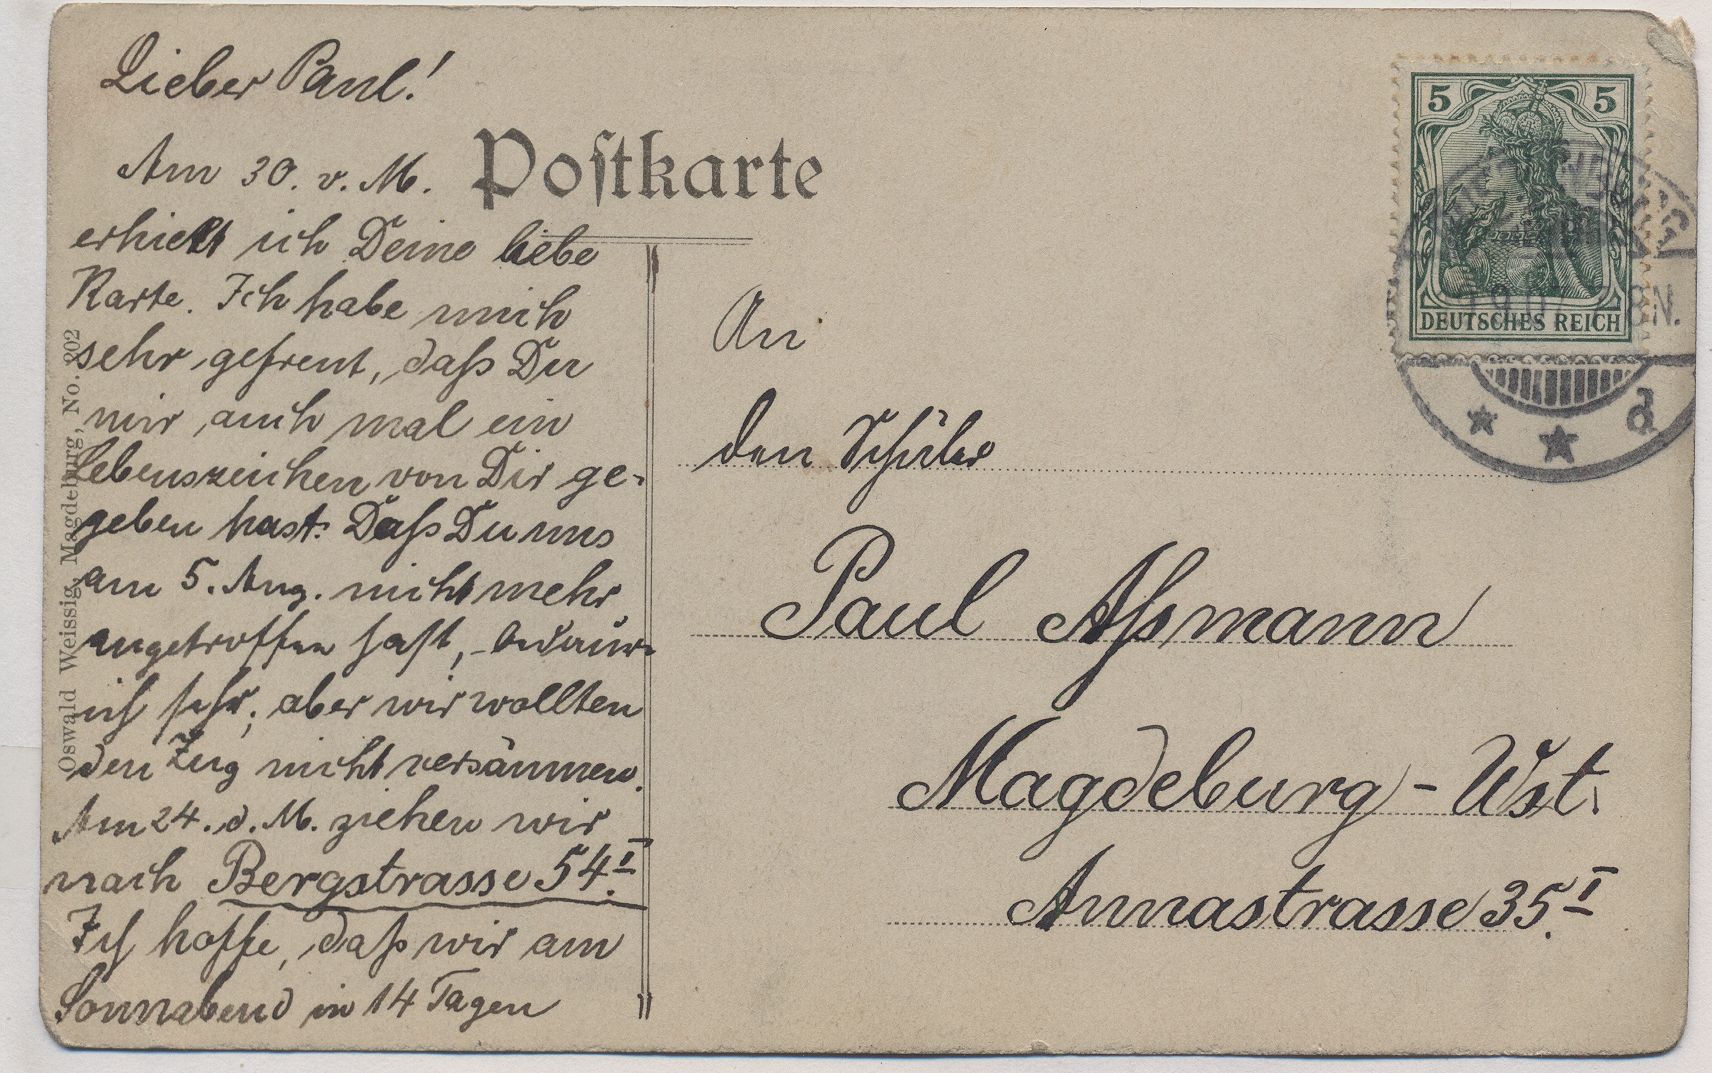 Lieber Paul!
Am 30. v. M.
erhielt ich Deine liebe
Karte. Ich habe mich
sehr gefreut, daß Du
mir auch mal ein
Lebenszeichen von Dir ge-
geben hast. Daß Du uns
am 5. Aug. nicht mehr
angetroffen hast, bedaure
ich sehr, aber wir wollten
den Zug nicht versäumen.
Am 24. d. M. ziehen wir
nach Bergstrasse 54.I
Ich hoffe, daß wir am
Sonnabend in 14 Tagen
Oswald Weissig, Magdeburg, No. 202
Postkarte
An
den Schüler
Paul Aßmann
Magdeburg-Wst.
Annastrasse 35.I
5 5
DEUTSCHES REICH
8N.
* * d